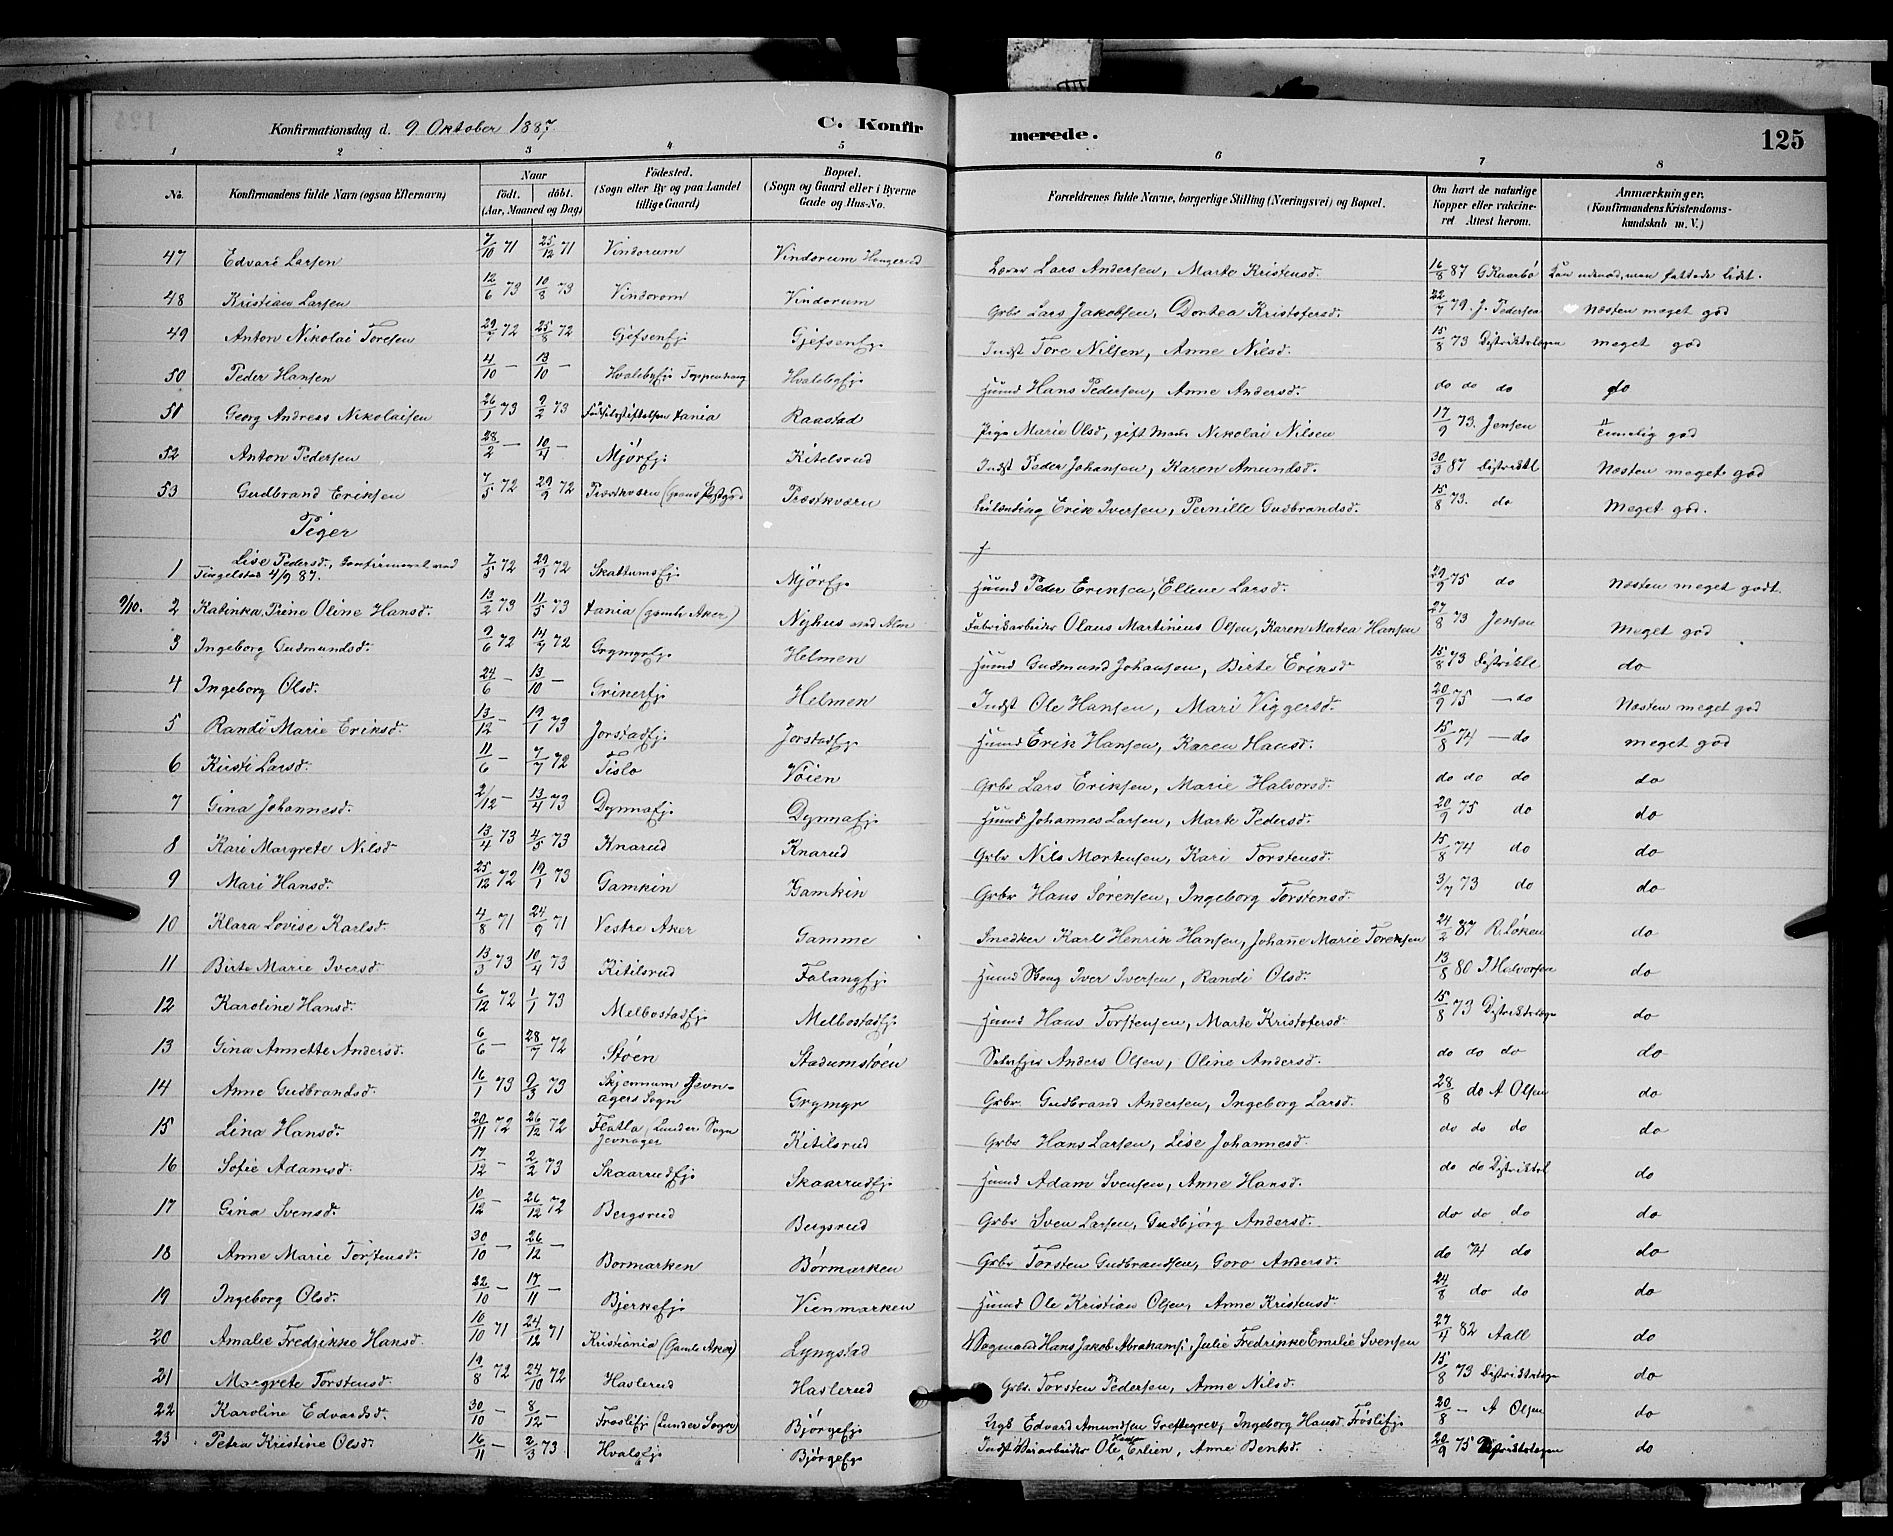 Konfirmationsdag d. 9 Oktober 1887. C. Konfirmerede. 125
1 2 3 4 5 6 7 8
No. Konfirmandens fulde Navn (ogsaa Efternavn) Naar født. døbt. (Aar, Maaned og Dag) Fødested. (Sogn eller By og paa Landet tillige Gaard) Bopæl. (Sogn og Gaard eller i Byerne Gade og Hus-No. Forældrenes fulde Navne, borgerlige Stilling (Næringsvei) og Bopæl. Om havt de naturlige Kopper eller vakcineret Attest herom. Anmærkninger. (Konfirmandens Kristendomskundskab m. V.)
47 Edvard Larsen 7/10 71 25/12 71 Vindorum Vindorum Lars Andersen, Marte Kristensd. 16/8 87 G Kaarbø
48 Kristian Larsen 12/6 73 10/8 73 Vindorom Vindorum Grbr Lars Jakobsen, Dortea Kristofersd. 22/7 79. J. Pedersen Næsten meget god
49 Anton Nikolai Toresen 29/7 72 25/8 72 Gjefsenej. Gjefsenej. Indst Tore Nilsen, Anne Nilsd. 15/8 73 Distriktslægen meget god
50 Peder Hansen 4/10 — 13/10 — Hvalebyej Hvalebyej Huusmd Hans Pedersen, Anne Andersd. do do do do
51 Georg Andreas Nikolaisen 26/1 73 9/2 73 Fødselsstiftelsen Xania Raastad Pige Marie Olsd, gift Nikolai Nilsen 17/9 73. Jensen Temelig god
52 Anton Pedersen 28/2 — 10/4 — Mjørej. Kitelsrud Indst Peder Johansen, Karen Amundsd. 30/3 87 Distriktl Næsten meget god
53 Gudbrand Eriksen 7/5 72 29/9 72 Præstkværn Præstkværn Erik Iversen, Pernille Gudbrandsd. 15/8 73. do Meget god.
Piger
1 Lise Pedersd., Confirmeret ved Tingelstad 4/9 87. 7/5 72 29/9 72 Skattumsej. Mjørej. Huusmd Peder Eriksen, Ellene Larsd. 29/9 75 do Næsten meget godt.
9/10. 2 Katinka Trine Oline Hansd. 13/2 73 11/5 73 Xania (gamle Aker) Nyhus ved Alm Fabrikarbeider Olaus Martinius Olsen, Karen Matea Hansen 27/8 73 Jensen Meget god
3 Ingeborg Gudmundsd. 9/6 72 14/7 72 Grymyrej. Helmen Huusmd Gudmund Johansen, Birte Eriksd 15/8 73 Distriktl do
4 Ingeborg Olsd. 24/6 — 13/10 — Grinerej. Helmen Indst Ole Hansen, Mari Viggersd. 20/9 75 — do Næsten meget god
5 Randi Marie Eriksd. 13/12 — 19/1 73 Jorstadej. Jorstadej. Huusmd Erik Hansen, Karen Hansd. 15/8 74 — do meget god
6 Kirsti Larsd. 11/6 — 7/7 72 Tislo Vøien Grbr Lars Eriksen, Marie Halvorsd. do do do do
7 Gina Johannesd. 2/12 — 13/4 73 Dynnaej. Dynnaej. Huusmd Johannes Larsen, Marte Pedersd. 20/9 75 do do
8 Kari Margrete Nilsd 13/4 73 4/5 73 Knarud Knarud Grbr Nils Mortensen, Kari Torstensd. 15/8 74 do do
9 Mari Hansd. 25/12 72 19/1 73 Gamkin Gamkin Grbr Hans Sørensen, Ingeborg Torstensd. 3/7 73 do do
10 Klara Lovise Karlsd. 4/8 71 24/9 71 Vestre Aker Gamme Snedker Karl Henrik Hansen, Johanne Marie Toreksen 24/2 87 R. Løken do
11 Birte Marie Iversd. 13/3 73 10/4 73 Kitilsrud Falangej. Huusmd Iver Iversen, Randi Olsd. 13/8 80 J. Halvorsen do
12 Karoline Hansd. 6/12 72 1/1 73 Melbostadej. Melbostadej. Huusmd Hans Torstensen, Marte Kristofersd. 15/8 73 Distriktslægn do
13 Gina Annette Andersd. 6/6 — 28/7 72 Støen Stadumstøen Anders Olsen, Oline Andersd. do do do do
14 Anne Gudbrandsd. 16/1 73 9/3 73 Skjennum Jevnagers Sogn Grymyr Grbr. Gudbrand Andersen, Ingeborg Larsd. 28/8 do A Olsen do
15 Lina Hansd. 20/11 72 26/12 72 Flatla, Lunder Sogn Jevnager Kitilsrud Grbr Hans Larsen, Lise Johannesd. do do do do
16 Sofie Adamsd. 17/12 — 2/2 73 Skaarrudej. Skaarrudej. Huusmd Adam Svensen, Anne Hansd. do do Distriktsl do
17 Gina Svensd. 10/12 — 26/12 72 Bergsrud Bergsrud Grbr Sven Larsen, Gudbjørg Andersd. do do do do
18 Anne Marie Torstensd. 30/10 — 26/12 — Bormarken Børmarken Grbr Torsten Gudbrandsen, Goro Andersd. do 74 do do
19 Ingeborg Olsd. 22/10 — 17/11 — Bjerkeej. Vienmarken Huusmd Ole Kristian Olsen, Anne Kristensd. 24/8 do do do
20 Amalie Fredrikke Hansd. 10/10 71 24/12 71 Kristiania (Gamle Aker) Lyngstad Vogmand Hans Jakob Abrahams., Julie Fredrikke Emilie Svensen 27/4 82 Aall do
21 Margrete Torstensd. 19/8 72 24/10 72 Haslerud Haslerud Grbr. Torsten Pedersen, Anne Nilsd. 15/8 73 Distriktslægen do
22 Karoline Edvardsd. 30/10 — 8/12 — Frøsliej (Lunder Sogn) Bjørgeej. Edvard Amundsen Grettegrev, Ingeborg Hansd. Frøsliej. 20/8 — A Olsen do
23 Petra Kristine Olsd. 16/11 2/3 73 Hvalsej. Bjørgeej. Indst Ole Hansen Erlien, Anne Bentsd. 20/9 75 Distriktslægen do